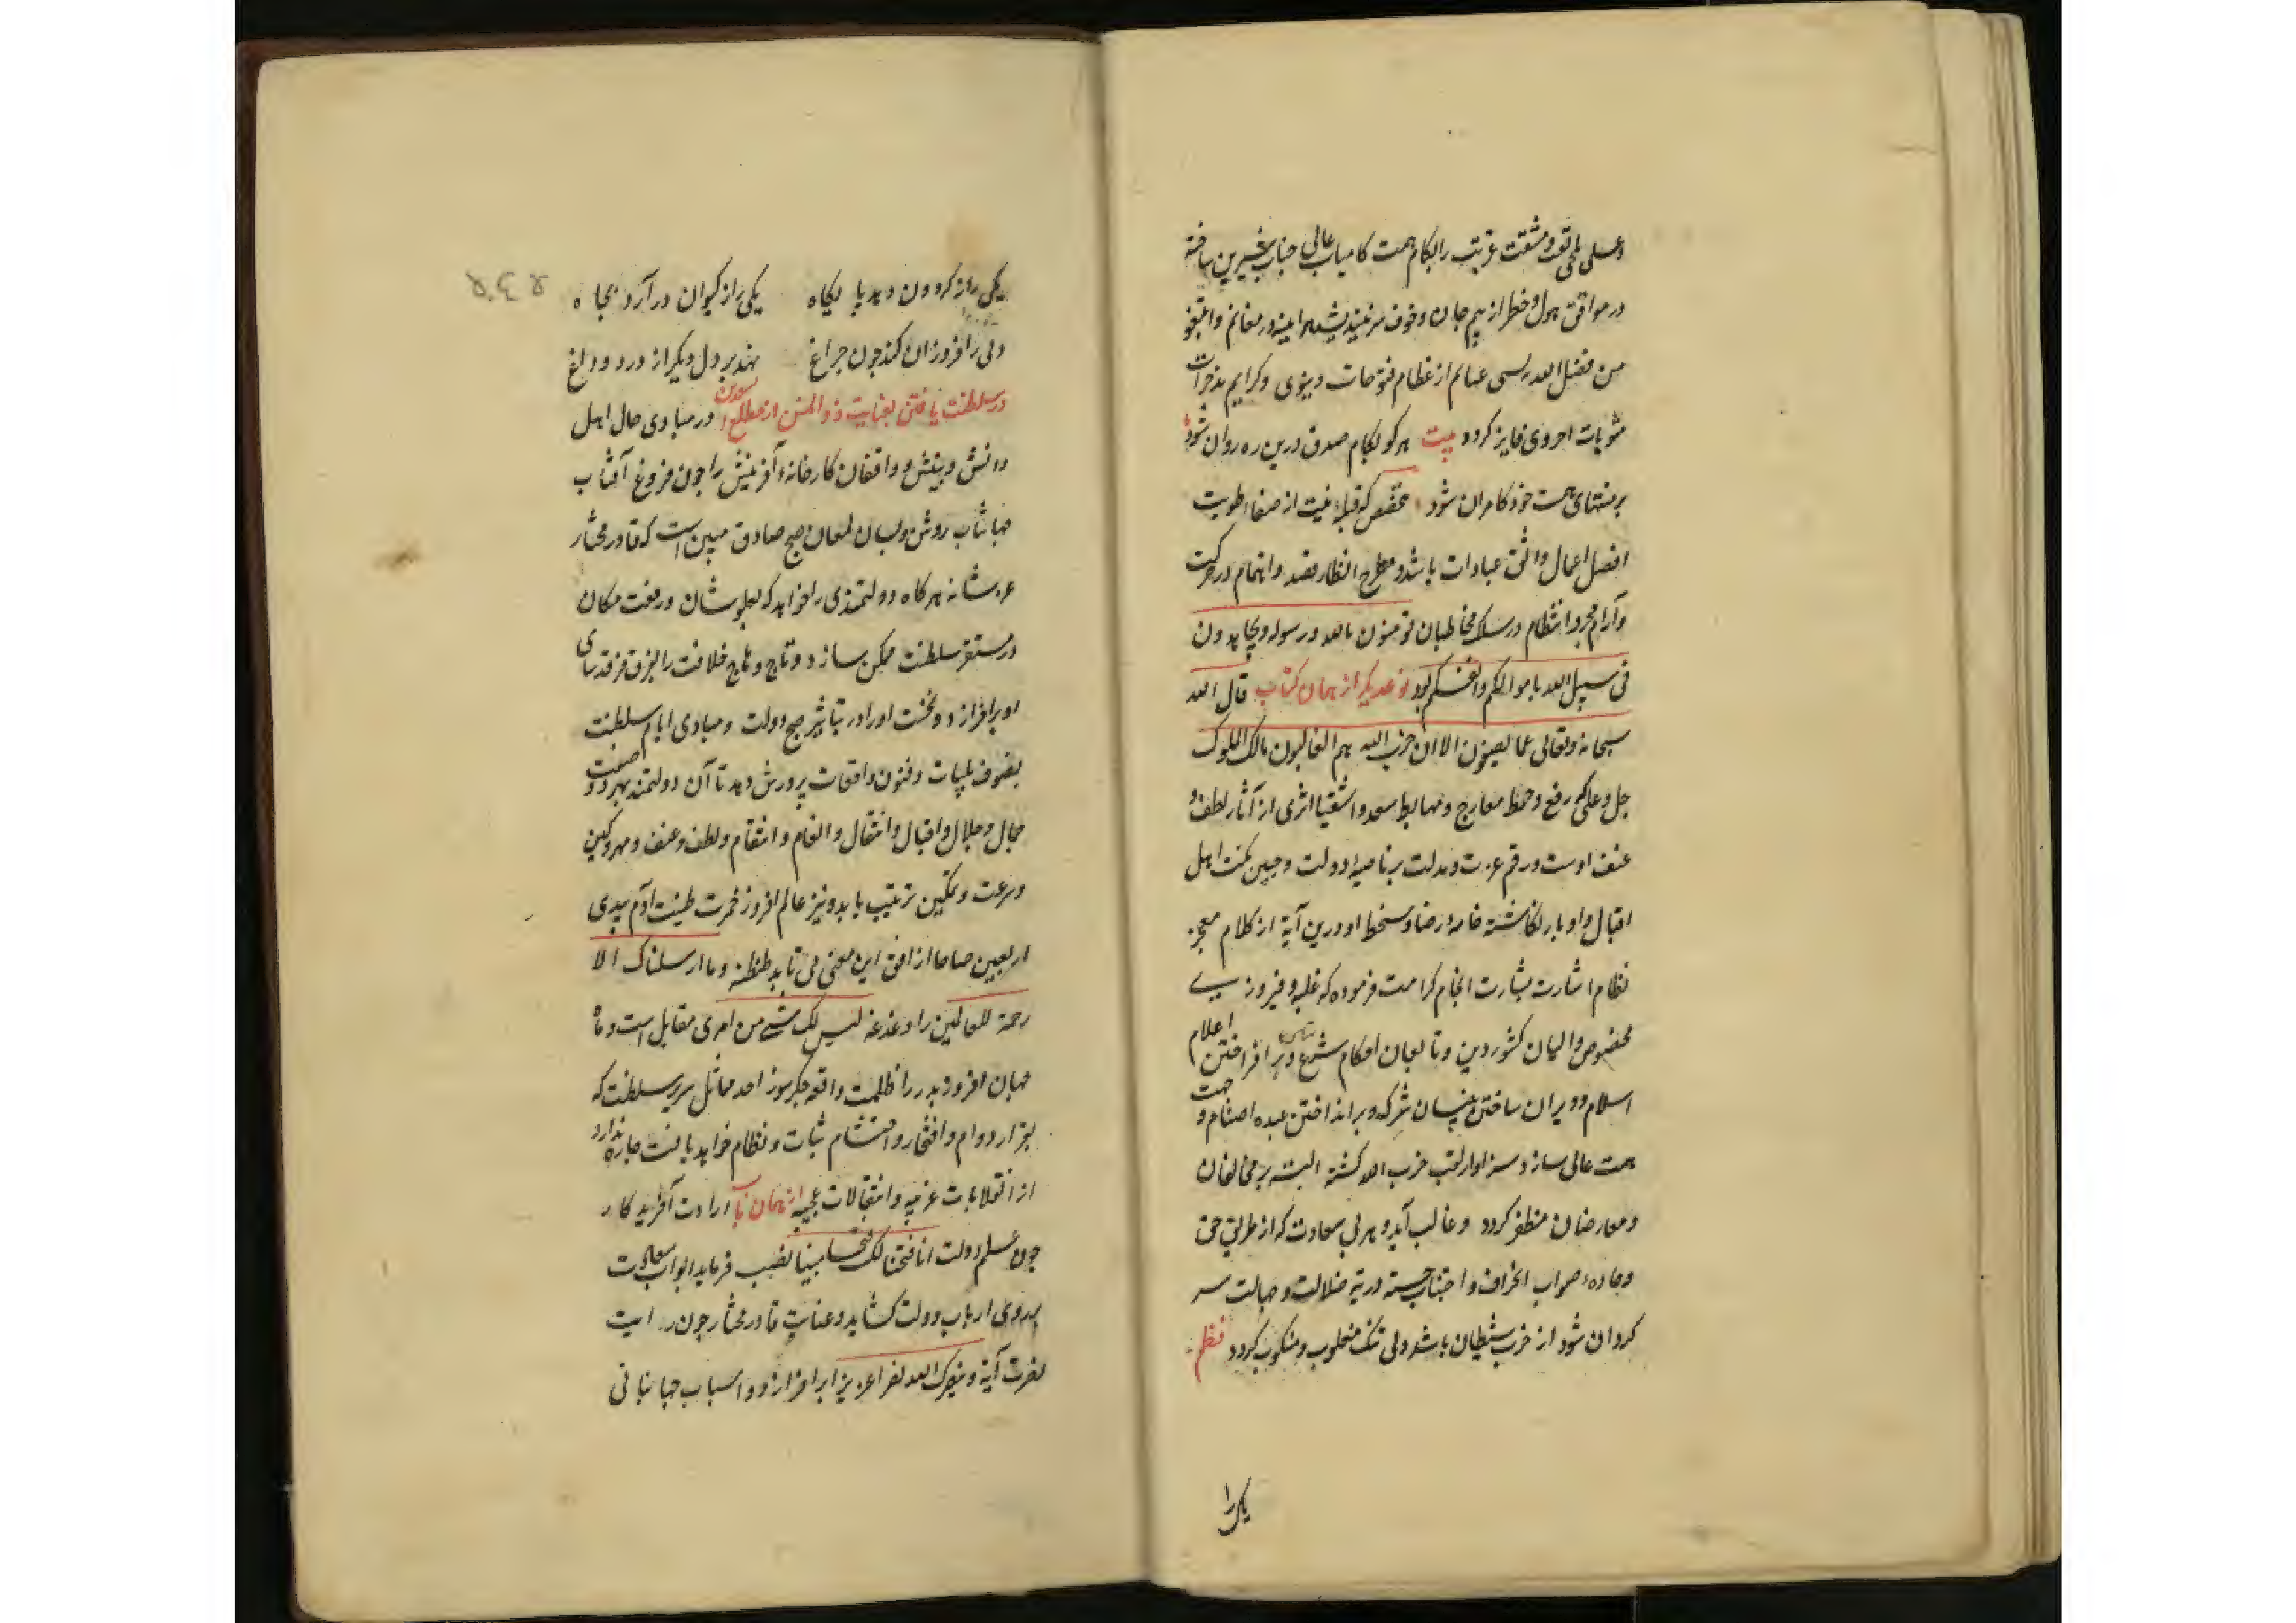 و عسلی تلخی تعب و مشقت غربت را بکام همت کامیاب عالی جناب شیرین ساخته
در مواقف هول و خطر از بیم جان و خوف سر نیندیشد هر آینه در مغانم و ابتغو
من فضل الله بسی غنایم از عظام فتوحات دینوی و کرایم مدخرات
مثوبات اخروی فایز کردد بیت هر کو بکام صدق درین ره روان شود
بر منتهای همت خود کامران شود مخصص که قبلهٔ نیت از صفاء طویت
افضل اعمال واثق عبادات باشد و مطرح انظار قصد و اهتمام در حرکت
و آرام مجرد انتظام در سلک مخاطبان تومنون بالله ورسوله ویجاهدون
فی سبیل الله باموالکم وانفسکم بود نوعدیکر از همان کتاب قال الله
سبحانه وتعالی عما یصفون الا ان حزب الله هم الغالبون مالک الملوک
جل وعلی که رفع و حط معارج و مهابط سعدا و اشقیا اثری از آثار لطف و
عنف اوست و رقم عزت و مذلت بر ناصیهٔ دولت و جبین نکبت اهل
اقبال و ادبار نکاشتهٔ خامهٔ رضا و سخط او درین آیة از کلام معجز
نظام اشارت بشارت انجام کرامت فرموده که غلبه و فیروزی
مخصوص والیان کشور دین و تابعان احکام شرع و بر افراختن اعلام
اسلام و ویران ساختن بنیان شرک و بر انداختن عبده اصنام وجهت
همت عالی سازد سزاوار لقب حزب الله کشته البته بر مخالفان
و معارضان مظفر کردد و غالب آید و هر بی سعادت که از طریق حق
و جادهٔ صواب انحراف و اجتناب جسته در تیه ضلالت و جهالت سر
کردان شود از حزب شیطان باشد ولی شک مغلوب و منکوب کردد نظم
یکی را
یکی را ز کردون دهد بارکاه یکی را ز کیوان در آرد بجاه
دلی را فروزان کند چون چراغ نهد بر دل دیکر از درد داغ
در سلطنت یافتن بعنایت ذوالمنن از مطلع سعدین در مبادی حال اهل
دانش و بینش و واقفان کارخانهٔ آفرینش را چون فروغ آفتاب
جهانتاب روشن و بسان لمعان صبح صادق مبین است که قادر مختار
عز شانه هر کاه دولتمندی را خواهد که بعلو شان و رفعت مکان
در مستقر سلطنت ممکن سازد و تاج وهاج خلافت را بفرق فرقدسای
او برافرازد و نخست او را در تباشیر صبح دولت و مبادی ایام سلطنت
بصنوف بلیات و فنون واقعات پرورش دهد تا آن دولتمند بهر دو صفت
جمال و جلال و اقبال و انتقال و انعام و انتقام و لطف و عنف و مهر و کین
و سرعت و تمکین ترتیب یابد و نیز عالم افروز خمرت طینت آدم بیدی
اربعین صباحا از افق این معنی می تابد طنطنهٔ وما ارسلناک الا
رحمة للعالمین را دغدغهٔ لیس لک من امری مقابل است و ماه
جهان افروز بدر را ظلمت واقعه جکرسوز احد مماثل سریر سلطنت که
بقرار دوام و افتخار و احتشام ثبات و نظام خواهد یافت چاره ندارد
از انقلابات غریبه و انتقالات عجیبه از همان باب ارادت آفریدکار
چون علم دولت انا فتحنا لک فتحا مبینا نصب فرماید ابواب سعادت
بروی ارباب دولت کشاید و عنایت قادر مختار چون رایت
نصرت آیة وینصرک الله نصرا عزیزا برافرازد و اسباب جهانبانی